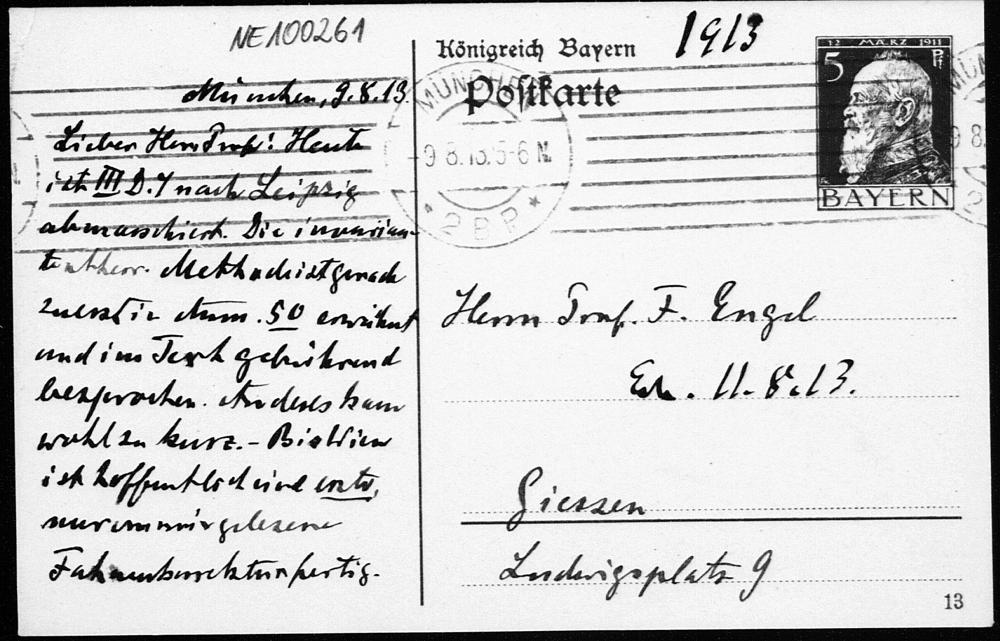 NE100261
1913
Königreich Bayern
Postkarte
12 MÄRZ 1911
5 Pf
BAYERN
MÜNCHEN
9 8.13. 5-6 N.
* 2 B.P. *
München, 9.8.13.
Lieber Herr Prof! Heute
ist III D. 7 nach Leipzig
abmarschiert. Die invarian-
Methode ist gerade
zuerst in Anm. 50 erwähnt
und im Text gebührend
besprochen. Anderes kam
wohl zu kurz. – Bis Wien
ist hoffentlich eine erste,
nur von mir gelesene
Fahnenkorrektur fertig.
Herrn Prof. F. Engel
Erh. 11.8.13.
Giessen
Ludwigsplatz 9
13